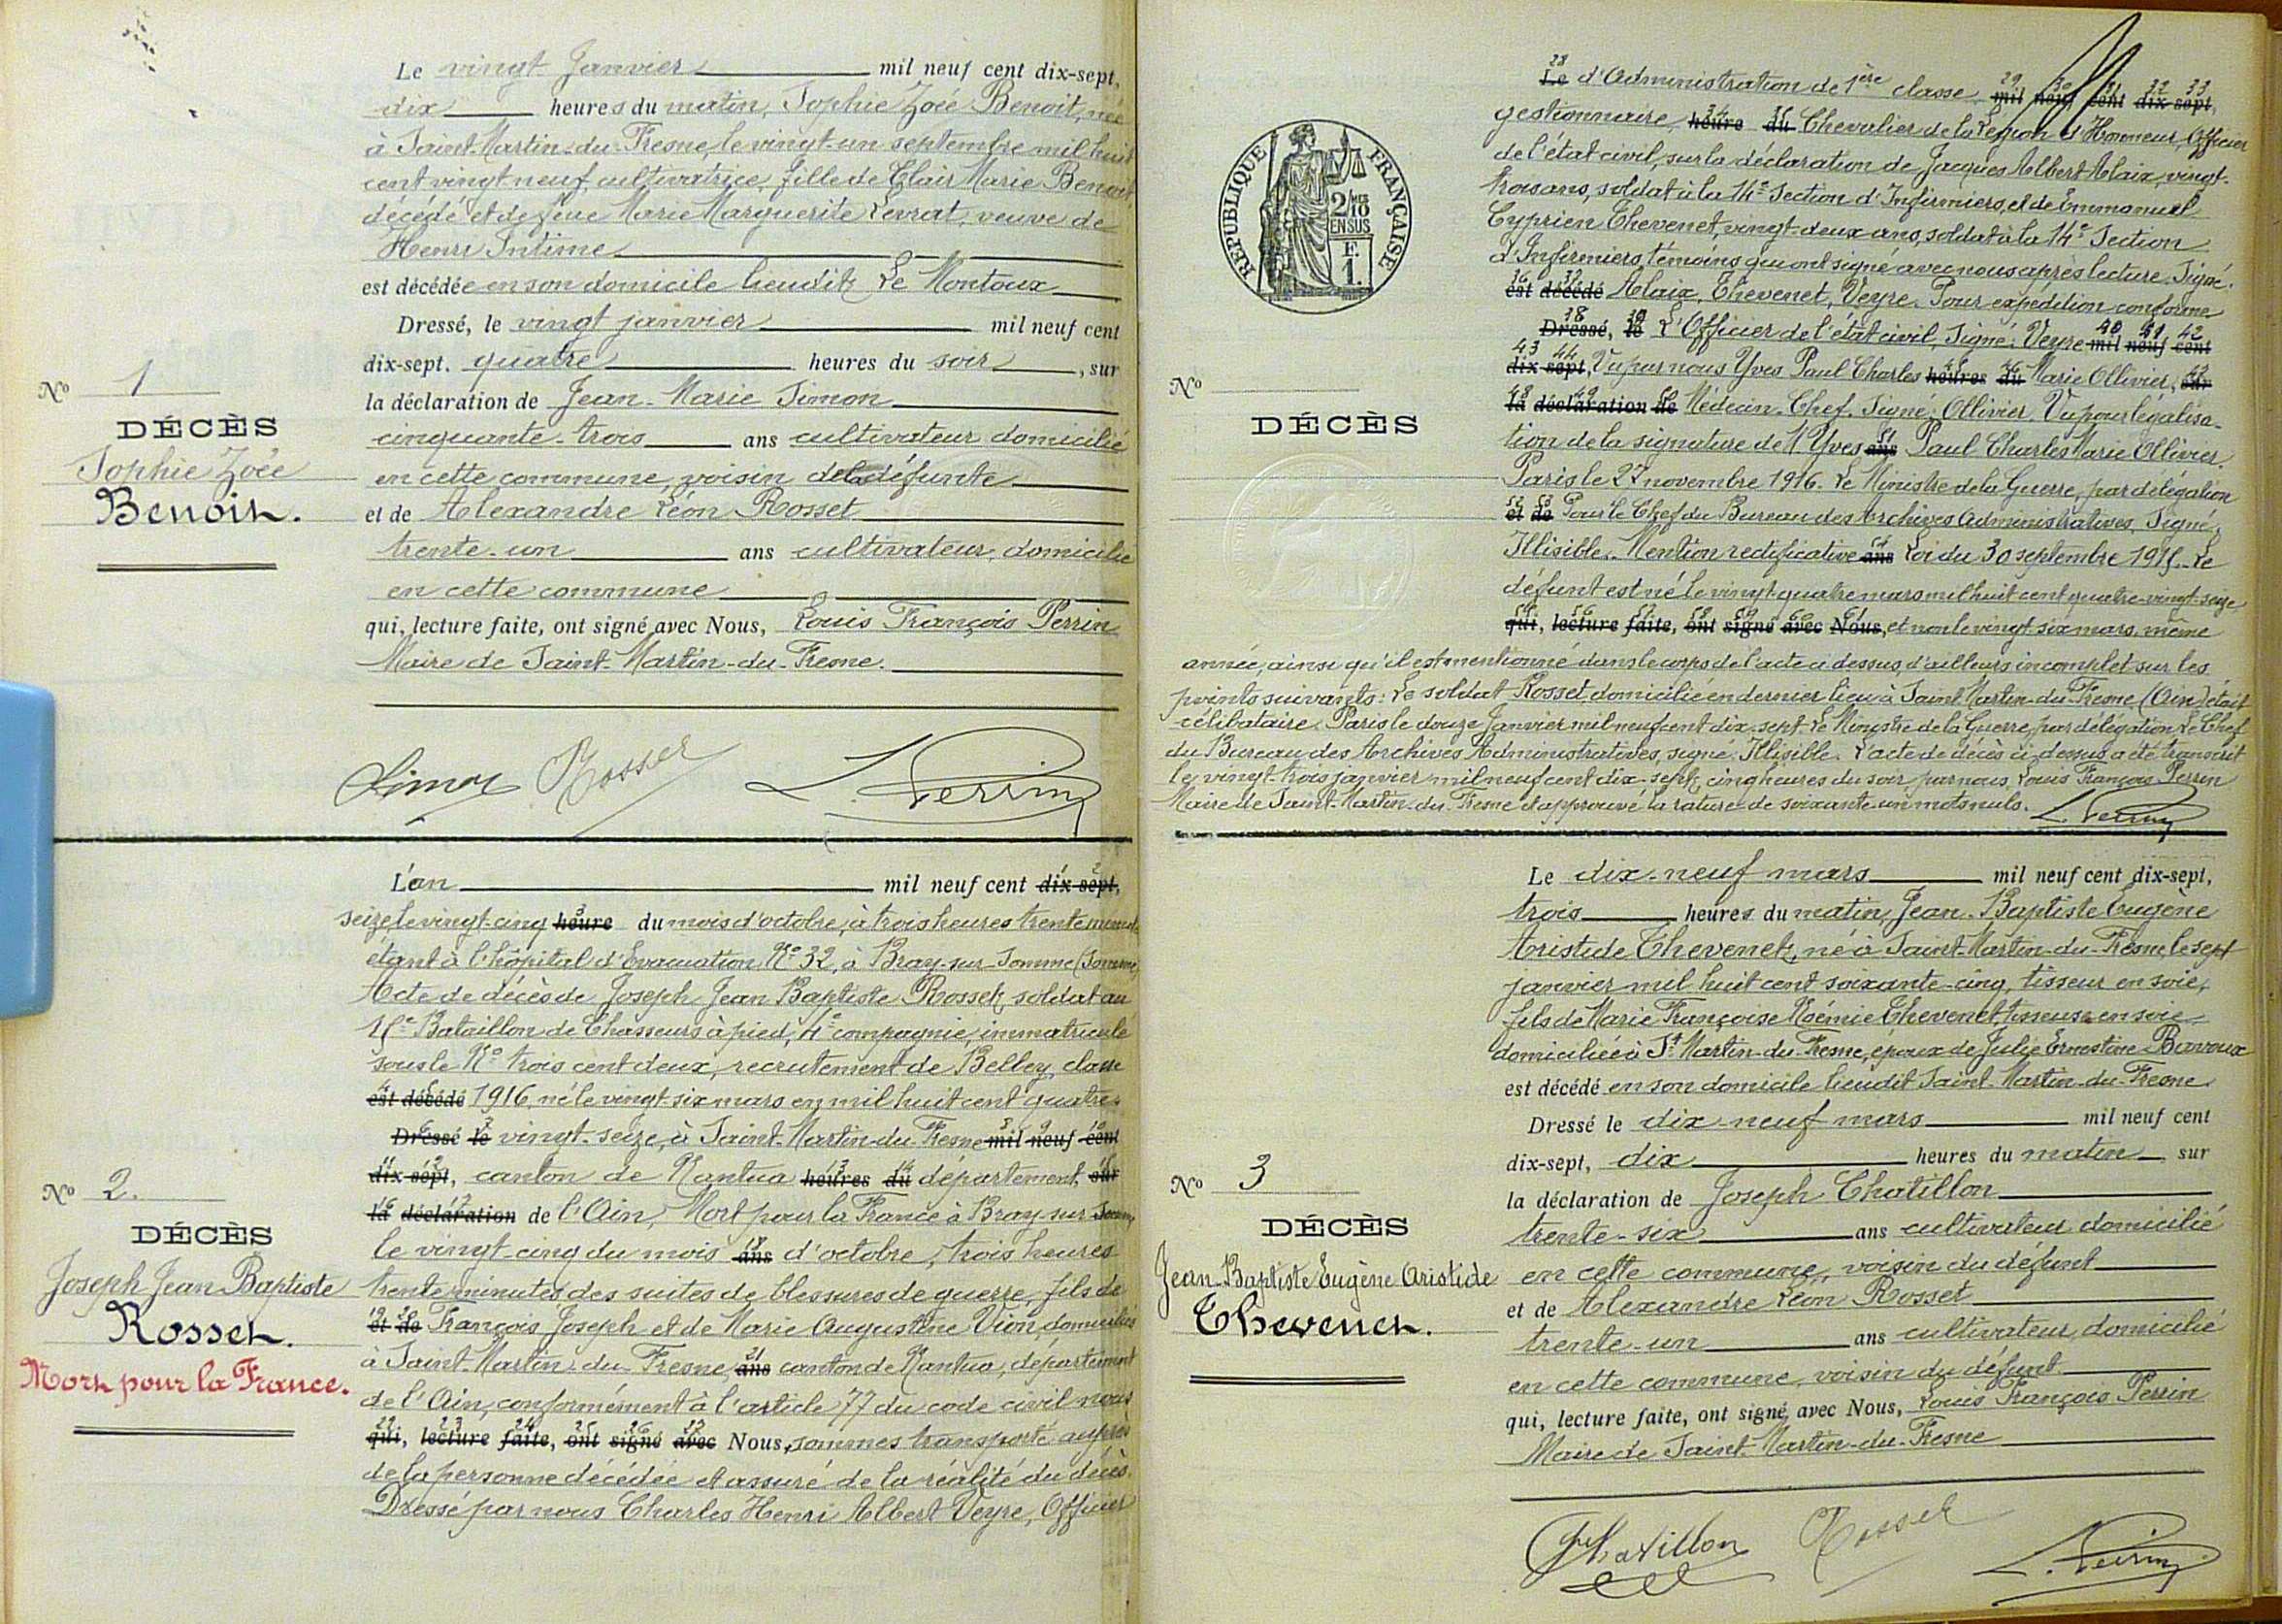 Le vingt Janvier mil neuf cent dix-sept,
dix heures du matin, Sophie Zoée Benoit, née
à Saint-Martin-du-Fresne, le vingt-un septembre mil huit
cent vingt neuf, cultivatrice, fille de Clair Marie Benoit
décédé et de feue Marie Marguerite Levrat, veuve de
Henri Intime
est décédée en son domicile lieudit Le Montoux
Dressé, le vingt janvier mil neuf cent
dix-sept, quatre heures du soir, sur
la déclaration de Jean-Marie Simon
cinquante-trois ans cultivateur domicilié
en cette commune, voisin de la défunte
et de Alexandre Léon Rosset
trente-un ans cultivateur, domicilié
en cette commune
qui, lecture faite, ont signé avec Nous, Louis François Perrin
Maire de Saint-Martin-du-Fresne.
No 1
DÉCÈS
Sophie Zoée
Benoit.
Simon Rosset L. Perrin
L'an mil neuf cent dix-sept,
seize, le vingt-cinq heure du mois d'octobre, à trois heures trente minutes
étant à l'hôpital d'Evacuation No 32, à Bray-sur-Somme (Somme)
Acte de décès de Joseph Jean Baptiste Rosset, soldat au
Bataillon de Chasseurs à pied, 4e compagnie, immatriculé
sous le No trois cent deux, recrutement de Belley, classe
est décédé 1916, né le vingt-six mars en mil huit cent quatre-
Dressé le vingt-seize, à Saint-Martin-du-Fresne mil neuf cent
dix-sept, canton de Nantua heures du département, sur
la déclaration de l'Ain, Mort pour la France à Bray-sur-Somme
le vingt-cinq du mois ans d'octobre, trois heures
trente minutes des suites de blessures de guerre, fils de
et de François Joseph et de Marie Augustine Vion, domiciliés
à Saint-Martin-du-Fresne, ans canton de Nantua, département
de l'Ain, conformément à l'article 77 du code civil nous
qui, lecture faite, ont signé avec Nous, sommes transporté auprès
de la personne décédée et assuré de la réalité du décès.
Dressé par nous Charles Henri Albert Veyre, Officier
No 2.
DÉCÈS
Joseph Jean Baptiste
Rosset.
Mort pour la France.
Le d'Administration de 1ère classe mil neuf cent dix-sept,
gestionnaire, heure du Chevalier de la Légion d'Honneur, Officier
de l'état civil, sur la déclaration de Jacques Albert Alaix, vingt-
trois ans, soldat à la 14e Section d'Infirmiers, et de Emmanuel
Cyprien Thevenet, vingt-deux ans, soldat à la 14e Section
d'Infirmiers, témoins qui ont signé avec nous après lecture. Signé:
est décédé Alaix, Thevenet, Veyre. Pour expédition conforme
Dressé, le L'Officier de l'état civil, Signé: Veyre mil neuf cent
dix-sept, Vu par nous Yves Paul Charles heures du Marie Ollivier, sur
la déclaration de Médecin-Chef. Signé: Ollivier. Vu pour légalisa-
tion de la signature de M. Yves ans Paul Charles Marie Ollivier.
Paris le 27 novembre 1916. Le Ministre de la Guerre, par délégation
et de Pour le Chef du Bureau des Archives Administratives, Signé:
Illisible. Mention rectificative ans Loi du 30 septembre 1915. Le
défunt est né le vingt-quatre mars mil huit cent quatre-vingt-seize
qui, lecture faite, ont signé avec Nous, et non le vingt-six mars, même
année, ainsi qu'il est mentionné dans le corps de l'acte ci dessus, d'ailleurs incomplet sur les
points suivants: Le soldat Rosset, domicilié en dernier lieu à Saint-Martin-du-Fresne (Ain) était
célibataire. Paris le douze Janvier mil neuf cent dix-sept. Le Ministre de la Guerre, par délégation Le Chef
du Bureau des Archives Administratives, signé: Illisible. L'acte de décès ci-dessus a été transcrit
le vingt-trois janvier mil neuf cent dix-sept, cinq heures du soir par nous, Louis François Perrin
Maire de Saint-Martin-du-Fresne et approuvé la rature de soixante un mots nuls. L. Perrin
RÉPUBLIQUE FRANÇAISE
2/10
EN SUS
F.
1.
No
DÉCÈS
Le dix-neuf mars mil neuf cent dix-sept,
trois heures du matin, Jean-Baptiste Eugène
Aristide Thevenet, né à Saint-Martin-du-Fresne, le sept
janvier mil huit cent soixante-cinq, tisseur en soie,
fils de Marie Françoise Noémie Thevenet, tisseuse en soie
domiciliée à St Martin-du-Fresne, époux de Julie Ernestine Bavoux
est décédé en son domicile lieudit Saint-Martin-du-Fresne.
Dressé le dix neuf mars mil neuf cent
dix-sept, dix heures du matin, sur
la déclaration de Joseph Chatillon
trente-six ans cultivateur domicilié
en cette commune, voisin du défunt
et de Alexandre Léon Rosset
trente-un ans cultivateur, domicilié
en cette commune, voisin du défunt
qui, lecture faite, ont signé avec Nous, Louis François Perrin
Maire de Saint-Martin-du-Fresne
No 3
DÉCÈS
Jean-Baptiste Eugène Aristide
Thevenet.
Chatillon Rosset L. Perrin